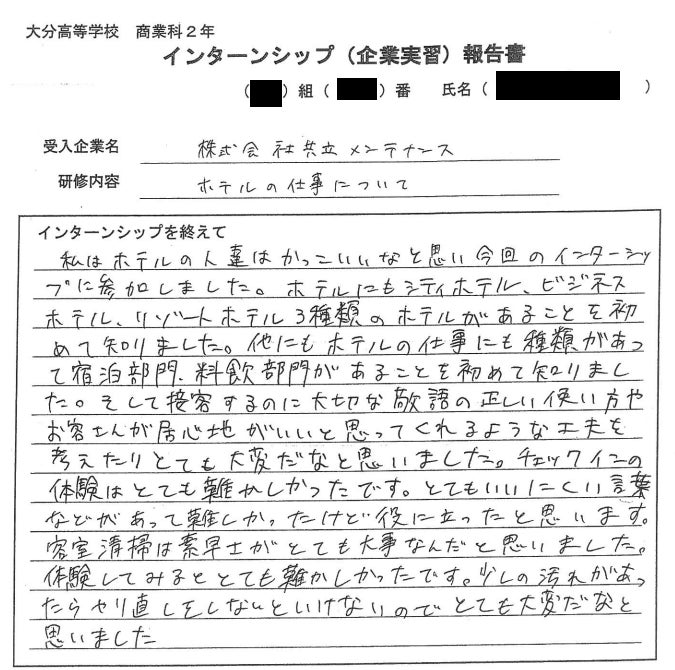 大分高等学校 商業科2年
インターンシップ(企業実習)報告書
( )組( )番 氏名( )
受入企業名 株式会社共立メンテナンス
研修内容 ホテルの仕事について
インターンシップを終えて
私はホテルの人達はかっこいいなと思い今回のインターシッ
プに参加しました。ホテルにもシティホテル、ビジネス
ホテル、リゾートホテル3種類のホテルがあることを初
めて知りました。他にもホテルの仕事にも種類があっ
て宿泊部門、料飲部門があることを初めて知りまし
た。そして接客するのに大切な敬語の正しい使い方や
お客さんが居心地がいいと思ってくれるような工夫を
考えたりとても大変だなと思いました。チェックインの
体験はとても難かしかったです。とてもいいにくい言葉
などがあって難しかったけど役に立ったと思います。
客室清掃は素早士がとても大事なんだと思いました。
体験してみるととても難かしかったです。少しの汚れがあっ
たらやり直しをしないといけないのでとても大変だなと
思いました